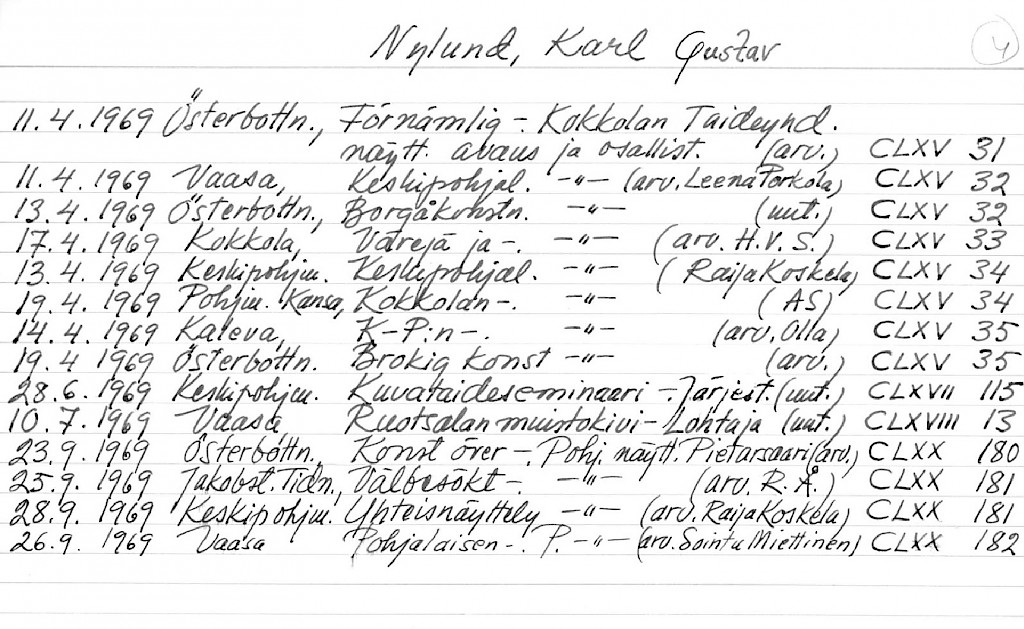 Nylund, Karl Gustav 4
11.4.1969 Österbottn., Förnämlig -. Kokkolan Taideyhd.
näytt. avaus ja osallist. (arv.) CLXV 31
11.4.1969 Vaasa, Keskipohjal. -"- (arv. Leena Porkola) CLXV 32
13.4.1969 Österbottn., Borgåkonstn. -"- (uut.) CLXV 32
17.4.1969 Kokkola, Värejä ja -. -"- (arv. H.V.S.) CLXV 33
13.4.1969 Keskipohjm. Keskipohjal. -"- (Raija Koskela) CLXV 34
19.4.1969 Pohjm. Kansa, Kokkolan -. -"- (AS) CLXV 34
14.4.1969 Kaleva, K-P:n -. -"- (arv. Olla) CLXV 35
19.4 1969 Österbottn. Brokig konst -"- (arv.) CLXV 35
28.6.1969 Keskipohjm. Kuvataideseminaari -. Järjest. (uut.) CLXVII 115
10.7.1969 Vaasa Ruotsalan muistokivi - Lohtaja (uut.) CLXVIII 13
23.9.1969 Österbottn. Konst över -. Pohj. näytt. Pietarsaari (arv.) CLXX 180
25.9.1969 Jakobst. Tidn., Välbesökt -. -"- (arv. R.Å.) CLXX 181
28.9.1969 Keskipohjm. Yhteisnäyttely -"- (arv. Raija Koskela) CLXX 181
26.9.1969 Vaasa Pohjalaisen -. P. -"- (arv. Sointu Miettinen) CLXX 182